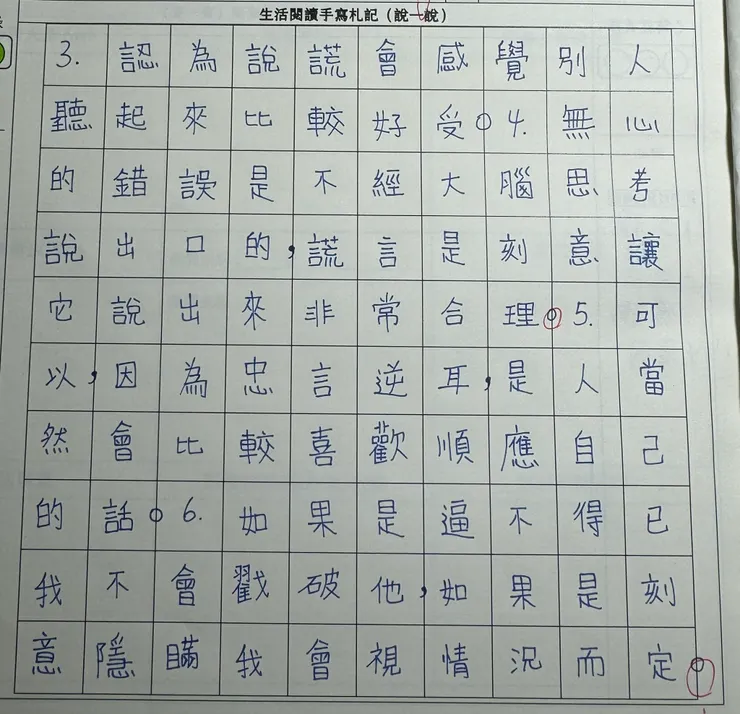 生活閱讀手寫札記（說一說）
3.認為說謊會感覺別人
聽起來比較好受。4.無心
的錯誤是不經大腦思考
說出口的，謊言是刻意讓
它說出來非常合理。5.可
以，因為忠言逆耳，是人當
然會比較喜歡順應自己
的話。6.如果是逼不得已
我不會戳破他，如果是刻
意隱瞞我會視情況而定。